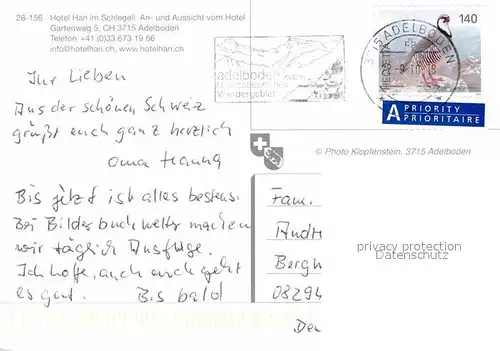 28-156 Hotel Han im Schlegeli An- und Aussicht vom Hotel
Gartenweg 5, CH 3715 Adelboden
Telefon +41 (0)33 673 19 66
info@hotelhan.ch, www.hotelhan.ch
140
3715 ADELBODEN
adelboden
Wandergebiet
A PRIORITY
PRIORITAIRE
Ihr Lieben
Aus der schönen Schweiz
grüßt euch ganz herzlich
Oma Hanna
© Photo Klopfenstein, 3715 Adelboden
Bis jetzt ist alles bestens.
Bei Bilderbuchwetter machen
wir täglich Ausflüge.
Ich hoffe, auch euch geht
es gut. Bis bald
Fam.
Andre
Bergw
08294
privacy protection
Datenschutz